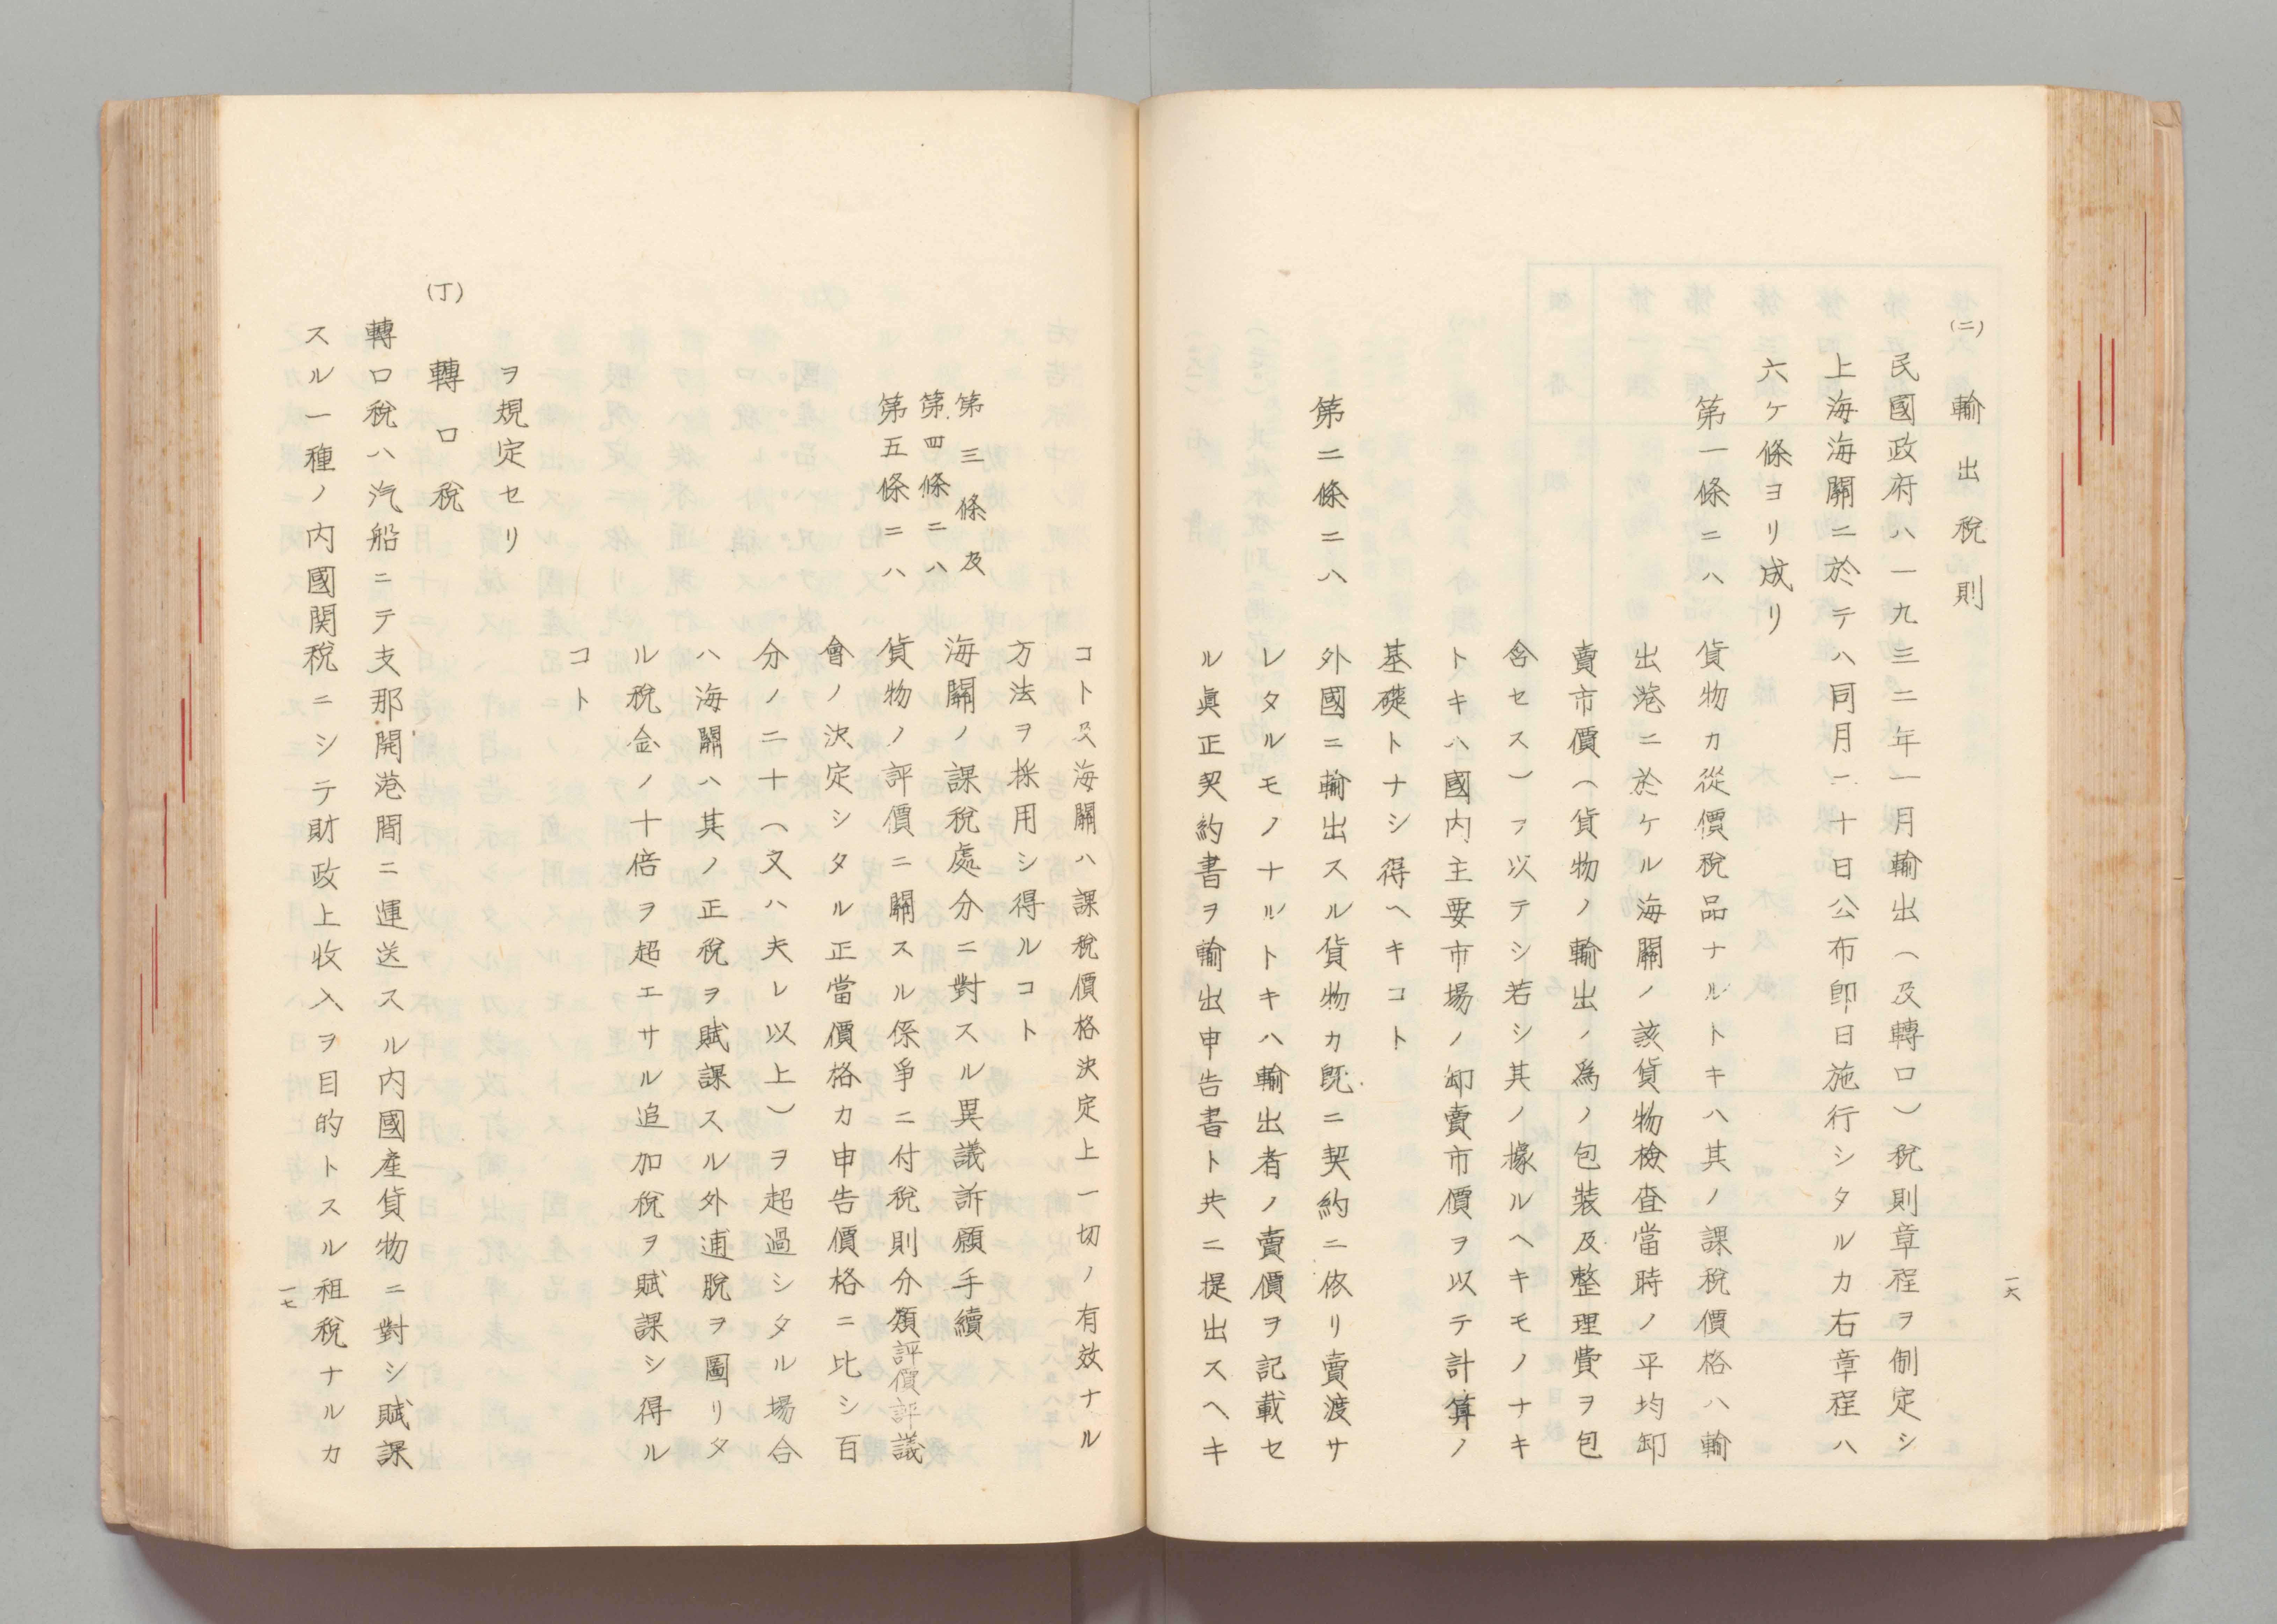 (二)　輸出稅則
民國政府ハ一九三二年一月輸出（及轉口）稅則章程ヲ制定シ
上海海關ニ於テハ同月二十日公布卽日施行シタルカ右章程ハ
六ケ條ヨリ成リ
第一條ニハ　貨物カ從價稅品ナルトキハ其ノ課稅價格ハ輸
出港ニ於ケル海關ノ該貨物檢査當時ノ平均卸
賣市價（貨物ノ輸出ノ爲ノ包裝及整理費ヲ包
含セス）ヲ以テシ若シ其ノ據ルヘキモノナキ
トキハ國內主要市場ノ卸賣市價ヲ以テ計算ノ
基礎トナシ得ヘキコト
第二條ニハ　外國ニ輸出スル貨物カ旣ニ契約ニ依リ賣渡サ
レタルモノナルトキハ輸出者ノ賣價ヲ記載セ
ル眞正契約書ヲ輸出申告書ト共ニ提出スヘキ
一六
コト及海關ハ課稅價格決定上一切ノ有效ナル
方法ヲ採用シ得ルコト
第三條及
第四條ニハ　海關ノ課稅處分ニ對スル異議訴願手續
第五條ニハ　貨物ノ評價ニ關スル係爭ニ付稅則分類評價評議
會ノ決定シタル正當價格カ申告價格ニ比シ百
分ノ二十（又ハ夫レ以上）ヲ超過シタル場合
ハ海關ハ其ノ正稅ヲ賦課スル外逋脫ヲ圖リタ
ル稅金ノ十倍ヲ超エサル追加稅ヲ賦課シ得ル
コト
ヲ規定セリ
(丁)　轉口稅
轉口稅ハ汽船ニテ支那開港間ニ運送スル內國產貨物ニ對シ賦課
スル一種ノ內國関稅ニシテ財政上收入ヲ目的トスル租稅ナルカ
一七